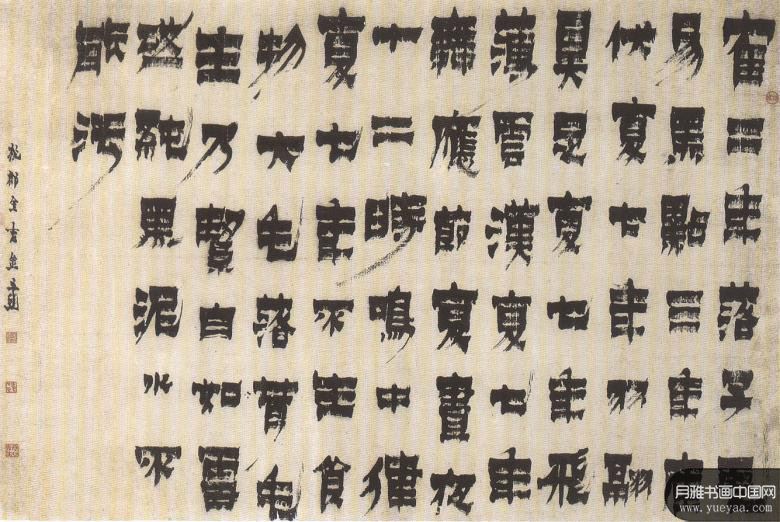 寉二年落子毛
易黑點三年產
伏复七年羽翮
具复七年飛
薄雲漢复七年
舞應節复晝夜
十二時鳴中律
复七年不生食
物大毛落茸毛
生乃白如雪
純黑泥水不
能污
杭郡金吉金
月雅书画中国网
www.yueyaa.com